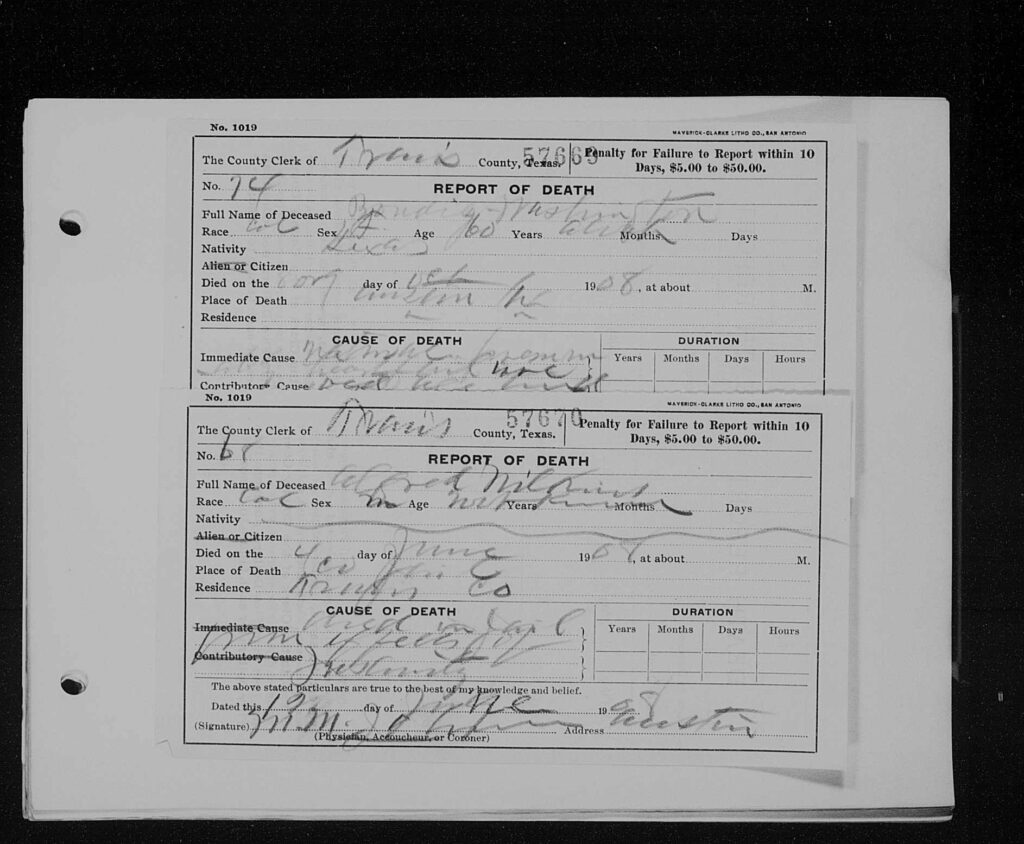 No. 1019 MAVERICK-CLARKE LITHO CO., SAN ANTONIO
The County Clerk of Travis County, Texas. 57669 Penalty for Failure to Report within 10
Days, $5.00 to $50.00.
No. 74 REPORT OF DEATH
Full Name of Deceased Washington
Race Col Sex F Age 60 Years about Months Days
Nativity Texas
Alien or Citizen
Died on the day of 1908, at about M.
Place of Death Austin
Residence
CAUSE OF DEATH DURATION
Immediate Cause Natural Years Months Days Hours
Contributory Cause
No. 1019 MAVERICK-CLARKE LITHO CO., SAN ANTONIO
The County Clerk of Travis County, Texas. 57670 Penalty for Failure to Report within 10
Days, $5.00 to $50.00.
No. 68 REPORT OF DEATH
Full Name of Deceased Alfred
Race Col Sex M Age not Years known Months Days
Nativity
Alien or Citizen
Died on the 4 day of June 1908, at about M.
Place of Death Co Jail
Residence Travis Co
CAUSE OF DEATH DURATION
Immediate Cause died in Jail Years Months Days Hours
from effects of
Contributory Cause
The above stated particulars are true to the best of my knowledge and belief.
Dated this day of June 1908
(Signature) Address Austin
(Physician, Accoucheur, or Coroner)